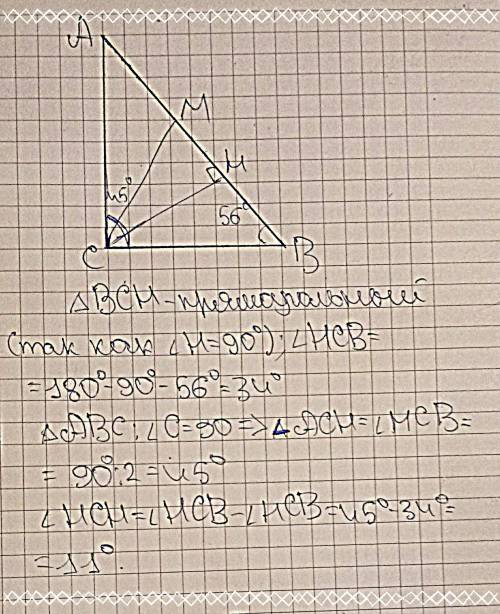 A
M
H
45°
56°
C
B
△BCH-прямоугольный
(так как ∠H=90°); ∠HCB=
=180°-90°-56°=34°
△ABC; ∠C=90=>∠ACM=∠MCB=
=90°:2=45°
∠MCH=∠MCB-∠HCB=45°-34°=
=11°.